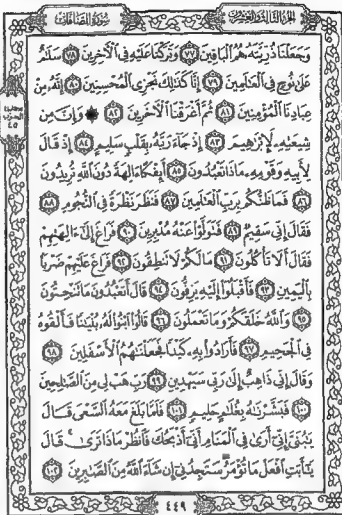 الجزء الثالث والعشرون
سورة الصافات
وَجَعَلْنَا ذُرِّيَّتَهُۥ هُمُ ٱلْبَاقِينَ ٧٧ وَتَرَكْنَا عَلَيْهِ فِي ٱلْآخِرِينَ ٧٨ سَلَٰمٌ
عَلَىٰ نُوحٍ فِي ٱلْعَالَمِينَ ٧٩ إِنَّا كَذَٰلِكَ نَجْزِي ٱلْمُحْسِنِينَ ٨٠ إِنَّهُۥ مِنْ
عِبَادِنَا ٱلْمُؤْمِنِينَ ٨١ ثُمَّ أَغْرَقْنَا ٱلْآخَرِينَ ٨٢ وَإِنَّ مِن
شِيعَتِهِۦ لَإِبْرَٰهِيمَ ٨٣ إِذْ جَآءَ رَبَّهُۥ بِقَلْبٍ سَلِيمٍ ٨٤ إِذْ قَالَ
لِأَبِيهِ وَقَوْمِهِۦ مَاذَا تَعْبُدُونَ ٨٥ أَئِفْكًا ءَالِهَةً دُونَ ٱللَّهِ تُرِيدُونَ
٨٦ فَمَا ظَنُّكُم بِرَبِّ ٱلْعَالَمِينَ ٨٧ فَنَظَرَ نَظْرَةً فِي ٱلنُّجُومِ ٨٨
فَقَالَ إِنِّي سَقِيمٌ ٨٩ فَتَوَلَّوْا۟ عَنْهُ مُدْبِرِينَ ٩٠ فَرَاغَ إِلَىٰٓ ءَالِهَتِهِمْ
فَقَالَ أَلَا تَأْكُلُونَ ٩١ مَا لَكُمْ لَا تَنطِقُونَ ٩٢ فَرَاغَ عَلَيْهِمْ ضَرْبًۢا
بِٱلْيَمِينِ ٩٣ فَأَقْبَلُوٓا۟ إِلَيْهِ يَزِفُّونَ ٩٤ قَالَ أَتَعْبُدُونَ مَا تَنْحِتُونَ
٩٥ وَٱللَّهُ خَلَقَكُمْ وَمَا تَعْمَلُونَ ٩٦ قَالُوا۟ ٱبْنُوا۟ لَهُۥ بُنْيَٰنًا فَأَلْقُوهُ
فِي ٱلْجَحِيمِ ٩٧ فَأَرَادُوا۟ بِهِۦ كَيْدًا فَجَعَلْنَٰهُمُ ٱلْأَسْفَلِينَ ٩٨
وَقَالَ إِنِّي ذَاهِبٌ إِلَىٰ رَبِّي سَيَهْدِينِ ٩٩ رَبِّ هَبْ لِي مِنَ ٱلصَّٰلِحِينَ
١٠٠ فَبَشَّرْنَٰهُ بِغُلَٰمٍ حَلِيمٍ ١٠١ فَلَمَّا بَلَغَ مَعَهُ ٱلسَّعْيَ قَالَ
يَٰبُنَيَّ إِنِّيٓ أَرَىٰ فِي ٱلْمَنَامِ أَنِّيٓ أَذْبَحُكَ فَٱنظُرْ مَاذَا تَرَىٰ قَالَ
يَٰٓأَبَتِ ٱفْعَلْ مَا تُؤْمَرُ سَتَجِدُنِيٓ إِن شَآءَ ٱللَّهُ مِنَ ٱلصَّٰبِرِينَ ١٠٢
الحزب
٤٥
٤٤٩